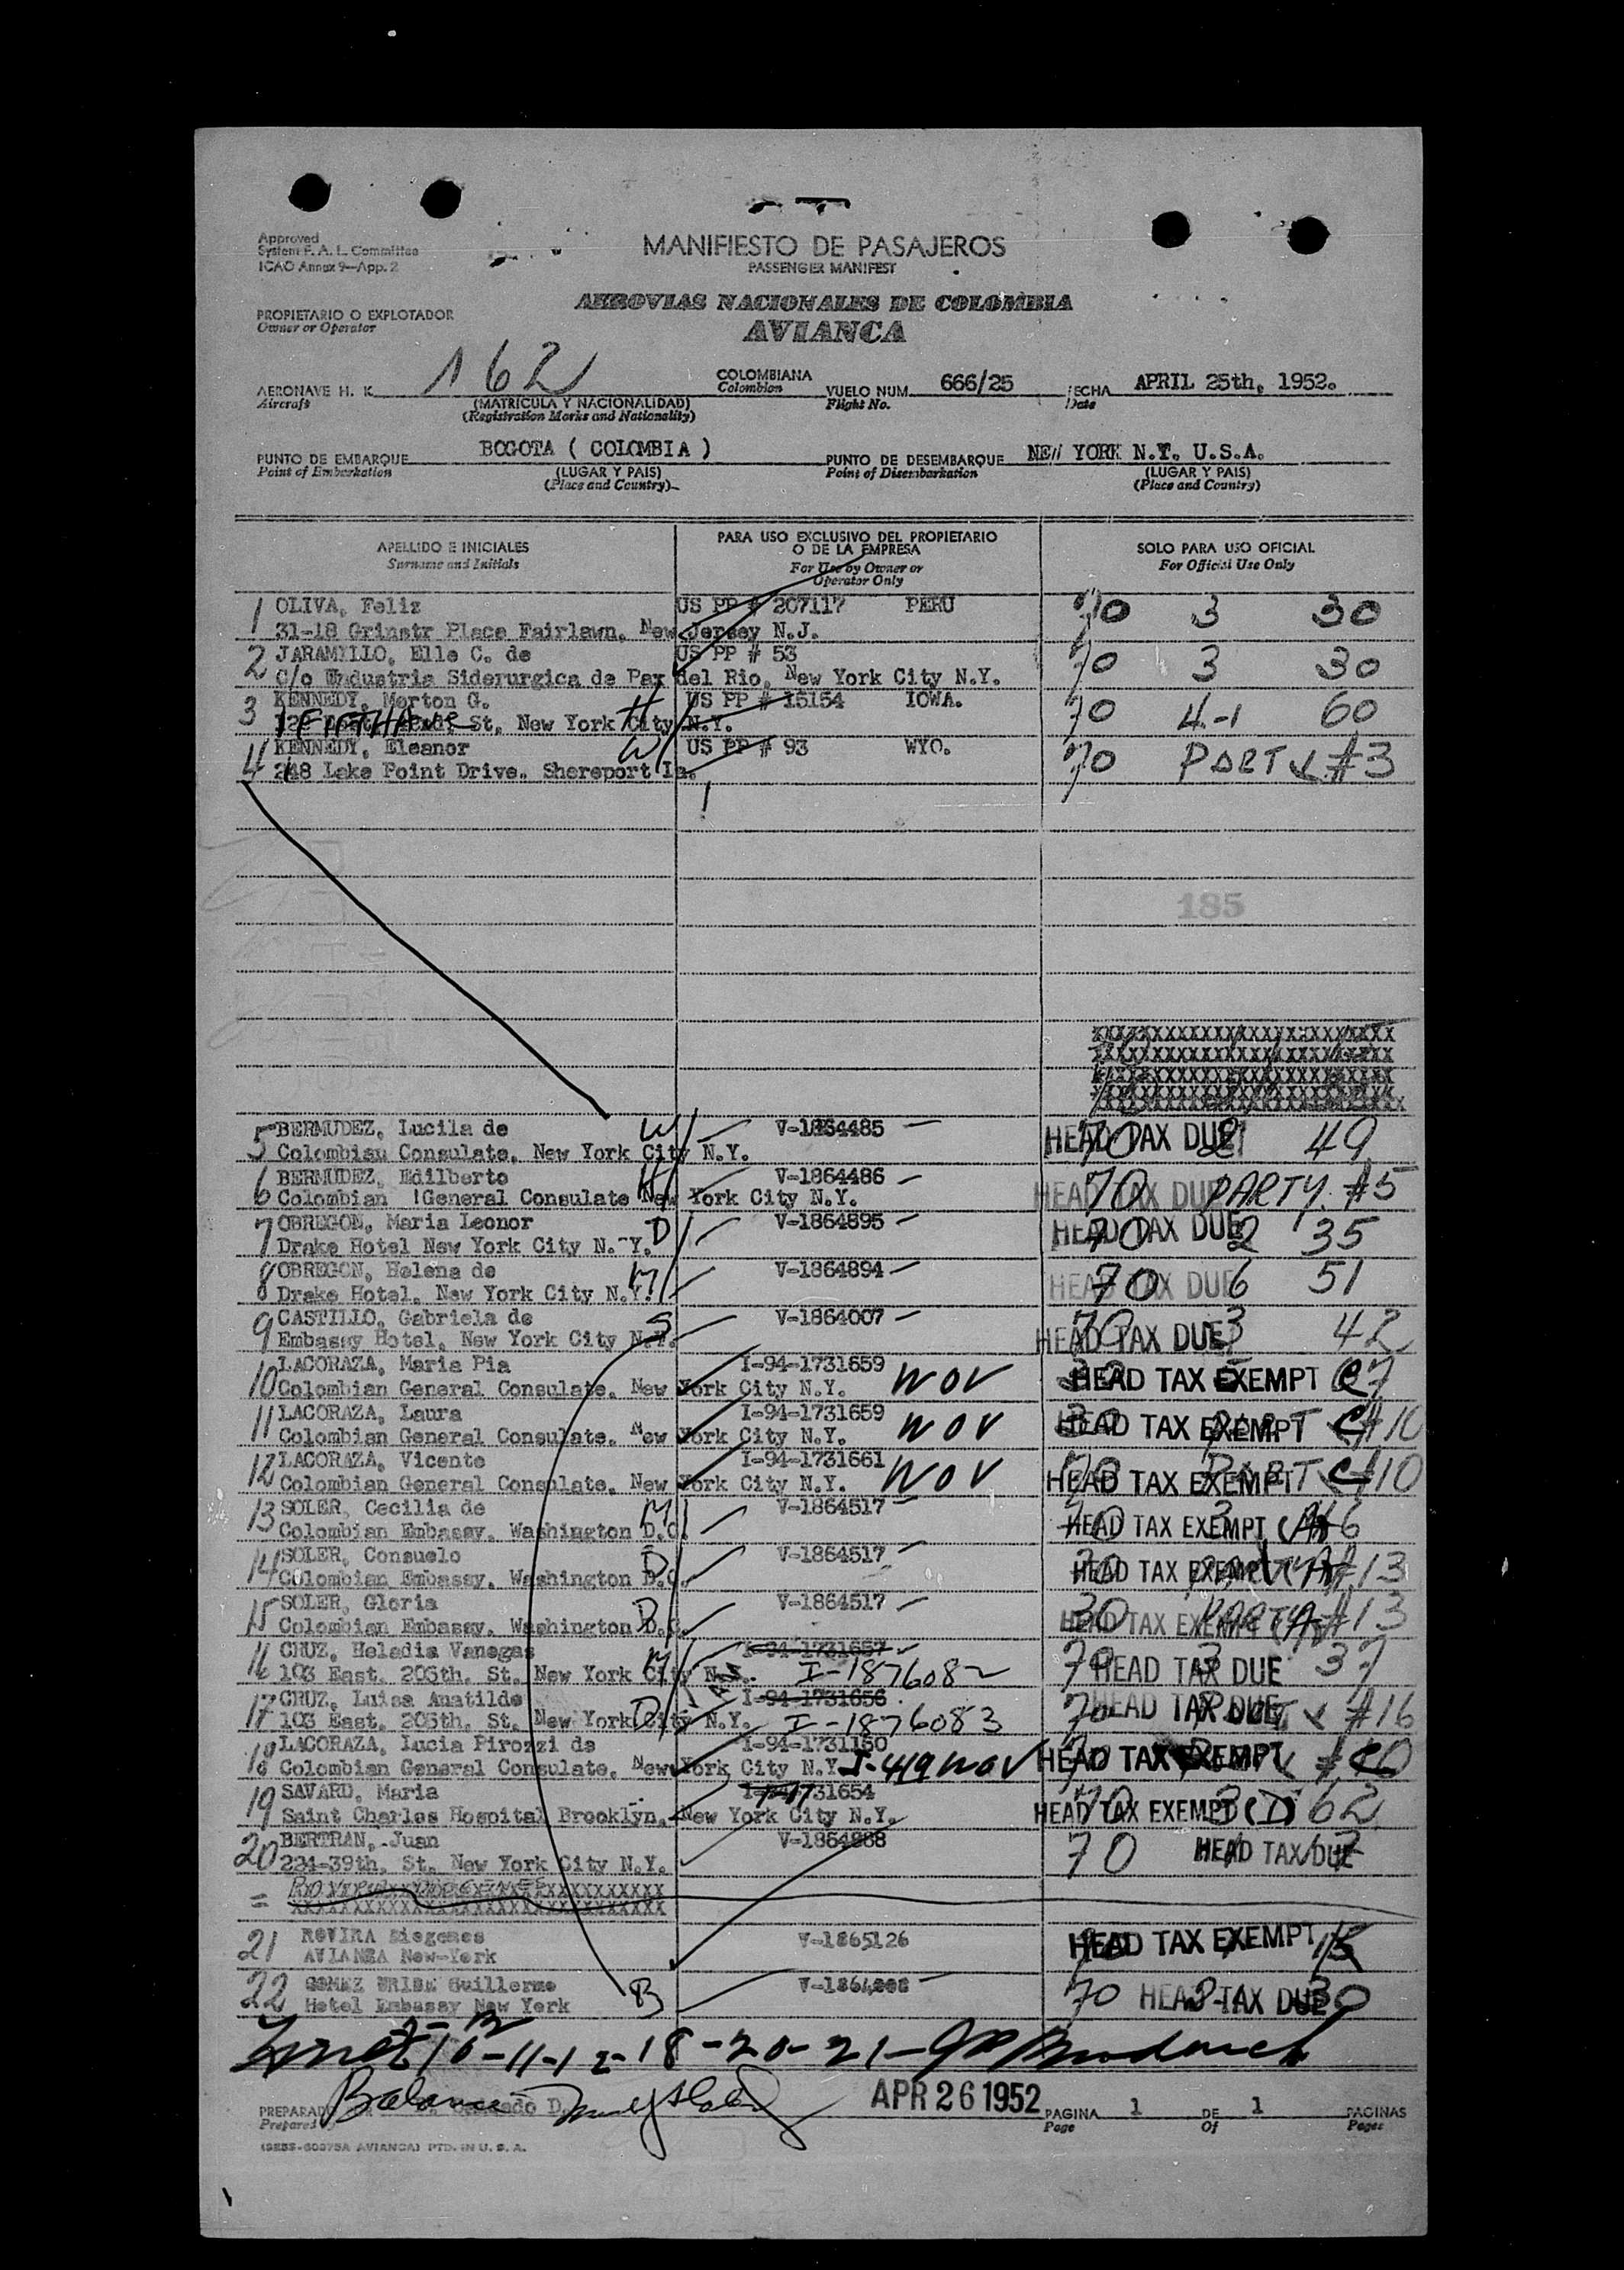 Approved
System F. A. L. Committee
ICAO Annex 9—App. 2
MANIFIESTO DE PASAJEROS
PASSENGER MANIFEST
AEROVIAS NACIONALES DE COLOMBIA
AVIANCA
PROPIETARIO O EXPLOTADOR
Owner or Operator
AERONAVE H. K. 162 COLOMBIANA VUELO NUM. 666/25 FECHA APRIL 25th, 1952.
Aircraft (MATRICULA Y NACIONALIDAD) Colombian Flight No. Date
(Registration Marks and Nationality)
PUNTO DE EMBARQUE BOGOTA ( COLOMBIA ) PUNTO DE DESEMBARQUE NEW YORK N.Y. U.S.A.
Point of Embarkation (LUGAR Y PAIS) Point of Disembarkation (LUGAR Y PAIS)
(Place and Country) (Place and Country)
APELLIDO E INICIALES PARA USO EXCLUSIVO DEL PROPIETARIO O DE LA EMPRESA SOLO PARA USO OFICIAL
Surname and Initials For Use by Owner or Operator Only For Official Use Only
1 OLIVA, Feliz US PP # 207117 PERU 70 3 30
31-18 Grinstr Place Fairlawn, New Jersey N.J.
2 JARAMILLO, Elle C. de US PP # 53 70 3 30
C/o Industria Siderurgica de Paz del Rio, New York City N.Y.
3 KENNEDY, Morton G. H US PP # 15154 IOWA. 70 4-1 60
1 FIFTH AVE St, New York City N.Y.
4 KENNEDY, Eleanor W US PP # 93 WYO. 70 PARTY #3
248 Lake Point Drive. Shereport La.
185
5 BERMUDEZ, Lucila de W V-1864485 HEAD TAX DUE 70 49
Colombian Consulate, New York City N.Y.
6 BERMUDEZ, Edilberto H V-1864486 HEAD TAX DUE 70 PARTY #5
Colombian General Consulate New York City N.Y.
7 OBREGON, Maria Leonor D V-1864895 HEAD TAX DUE 70 2 35
Drake Hotel New York City N.Y.
8 OBREGON, Helena de M V-1864894 HEAD TAX DUE 70 6 51
Drake Hotel, New York City N.Y.
9 CASTILLO, Gabriela de S V-1864007 HEAD TAX DUE 70 3 42
Embassy Hotel, New York City N.Y.
10 LACORAZA, Maria Pia I-94-1731659 WOV HEAD TAX EXEMPT
Colombian General Consulate, New York City N.Y.
11 LACORAZA, Laura I-94-1731659 WOV HEAD TAX EXEMPT C #10
Colombian General Consulate, New York City N.Y.
12 LACORAZA, Vicente I-94-1731661 WOV HEAD TAX EXEMPT C #10
Colombian General Consulate, New York City N.Y.
13 SOLER, Cecilia de M V-1864517 HEAD TAX EXEMPT (A)
Colombian Embassy, Washington D.C.
14 SOLER, Consuelo D V-1864517 HEAD TAX EXEMPT (A) #13
Colombian Embassy, Washington D.C.
15 SOLER, Gloria D V-1864517 HEAD TAX EXEMPT (A) PARTY #13
Colombian Embassy, Washington D.C.
16 CRUZ, Heladia Vanegas M I-94-1731657 70 HEAD TAX DUE 37
103 East, 205th, St, New York City N.Y. I-1876082
17 CRUZ, Luisa Anatilde D I-94-1731656 70 HEAD TAX DUE #16
103 East, 205th, St, New York City N.Y. I-1876083
18 LACORAZA, Lucia Pirozzi de I-94-1731150 HEAD TAX EXEMPT
Colombian General Consulate, New York City N.Y. I-419 WOV
19 SAVARD, Maria 1731654 70 HEAD TAX EXEMPT (D) 62
Saint Charles Hospital Brooklyn, New York City N.Y.
20 BERTRAN, Juan V-1864868 70 HEAD TAX DUE
224-39th, St, New York City N.Y.
21 ROVIRA Diogenes V-1865126 HEAD TAX EXEMPT
AVIANCA New-York
22 GOMEZ URIBE Guillermo B 70 HEAD TAX DUE 30
Hotel Embassy New York
10-11-12-18-20-21-
Balance
PREPARADO APR 26 1952 PAGINA 1 DE 1 PAGINAS
Prepared Page Of Pages
AVIANCA) PTD. IN U. S. A.